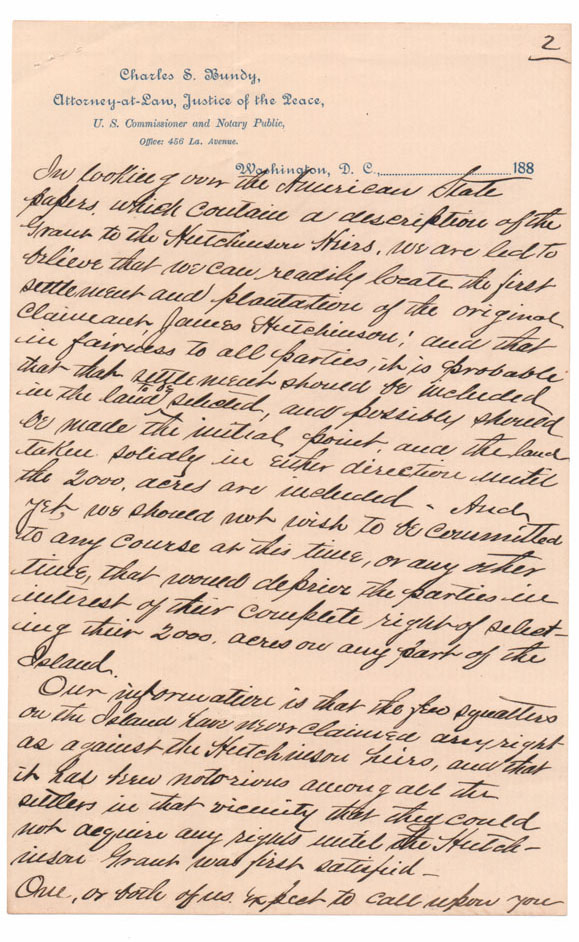 2
Charles S. Bundy,
Attorney-at-Law, Justice of the Peace,
U. S. Commissioner and Notary Public,
Office: 456 La. Avenue.
Washington, D. C., 188
In looking over the American State
papers, which contain a description of the
Grant to the Hutchinson Heirs, we are led to
believe that we can readily locate the first
settlement and plantation of the original
claimant, James Hutchinson; and that
in fairness to all parties, it is probable
that that settlement should be included
in the land to be selected, and possibly should
be made the initial point, and the land
taken solidly in either direction until
the 2000. acres are included - And
yet, we should not wish to be committed
to any course at this time, or any other
time, that would deprive the parties in
interest of their complete right of select-
ing their 2000. acres on any part of the
Island.
Our information is that the few squatters
on the Island have never claimed any right
as against the Hutchinson heirs, and that
it has been notorious among all the
settlers in that vicinity that they could
not acquire any rights until the Hutch-
inson Grant was first satisfied -
One, or both of us expect to call upon you